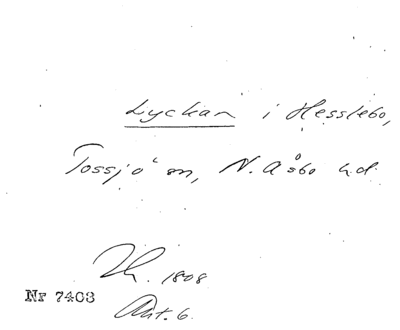 Lyckan i Hesslebo,
Tossjö sn, N. Åsbo hd.
1808
Nr 7403
Akt. 6.